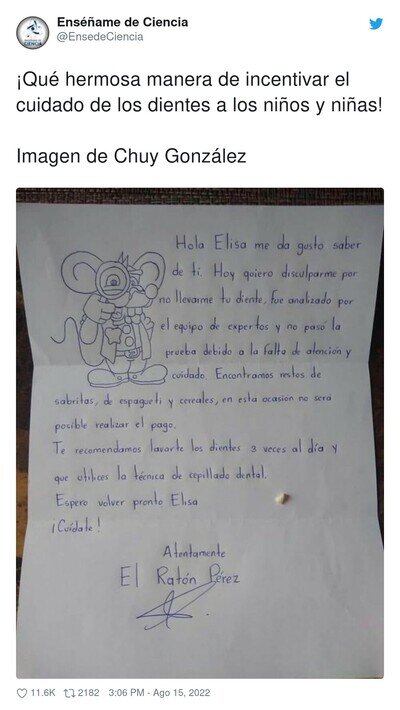 Enséñame de Ciencia
@EnsedeCiencia
¡Qué hermosa manera de incentivar el
cuidado de los dientes a los niños y niñas!
Imagen de Chuy González
Hola Elisa me da gusto saber
de ti. Hoy quiero disculparme por
no llevarme tu diente, fue analizado por
el equipo de expertos y no pasó la
prueba debido a la falta de atención y
cuidado. Encontramos restos de
sabritas, de espagueti y cereales, en esta ocasión no será
posible realizar el pago.
Te recomendamos lavarte los dientes 3 veces al día y
que utilices la técnica de cepillado dental.
Espero volver pronto Elisa
¡Cuídate!
Atentamente
El Ratón Pérez
11.6K 2182 3:06 PM - Ago 15, 2022